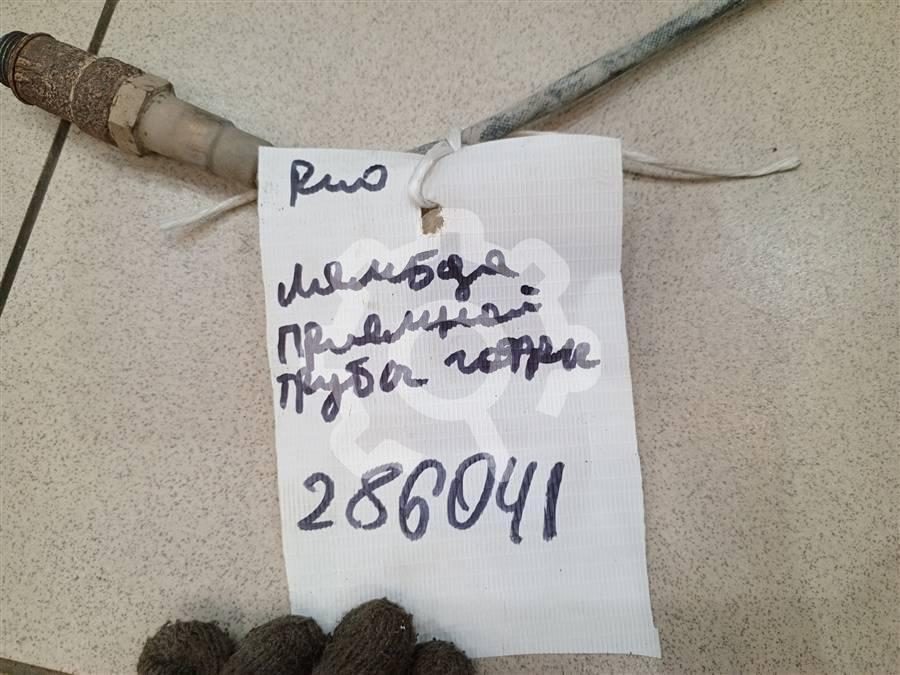 Rио
лямбда
приемной
трубы
286041